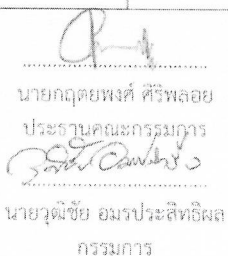 นายกฤตยพงศ์ ศิริพลอย
ประธานคณะกรรมการ
นายวุฒิชัย อมรประสิทธิผล
กรรมการ